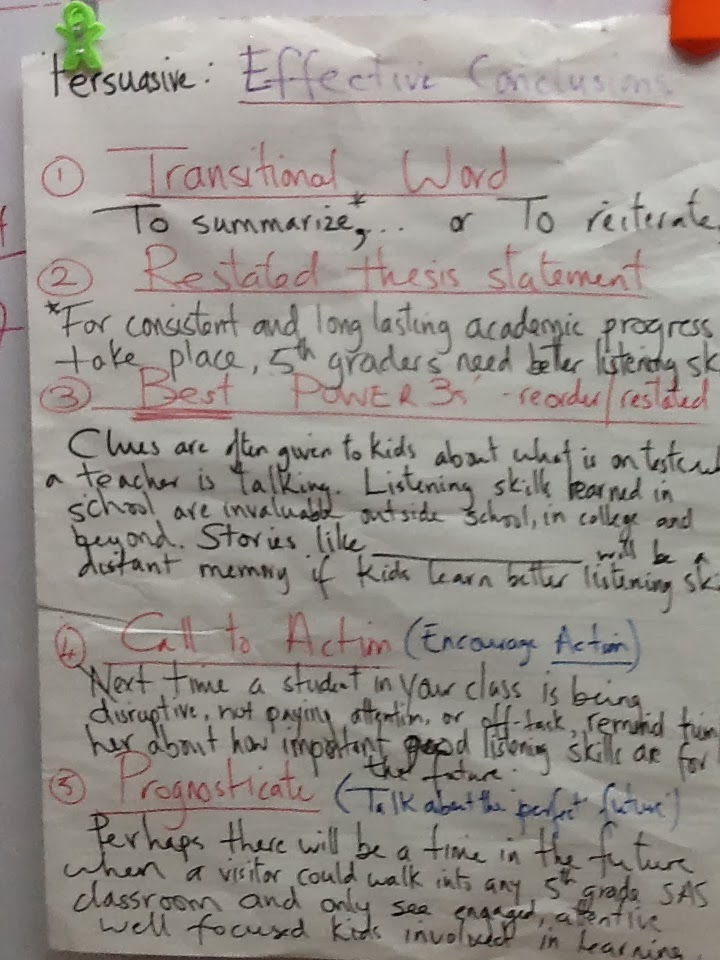 Persuasive: Effective Conclusions
① Transitional Word
To summarize,*... or To reiterate,
② Restated thesis statement
*For consistent and long lasting academic progress
take place, 5th graders need better listening sk
③ Best POWER 3s - reorder/restated
Clues are often given to kids about what is on tests
a teacher is talking. Listening skills learned in
school are invaluable outside school, in college and
beyond. Stories like __________ will be a
distant memory if kids learn better listening ski
④ Call to Action (Encourage Action)
Next time a student in your class is being
disruptive, not paying attention, or off-task, remind
her about how important good listening skills are for
the future.
⑤ Prognosticate (Talk about the 'perfect future')
Perhaps there will be a time in the future
when a visitor could walk into any 5th grade SAS
classroom and only see engaged, attentive
well focused kids involved in learning.